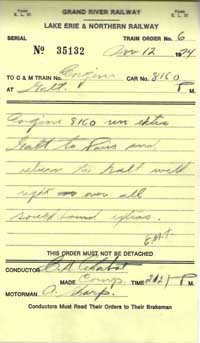 Form E. L. 31
GRAND RIVER RAILWAY
Form E. L. 31
LAKE ERIE & NORTHERN RAILWAY
SERIAL TRAIN ORDER No. 6
No 35132 Nov 12 1974
TO C & M TRAIN No. Engine CAR No. 8160
AT Galt. P M.
Engine 8160 run extra
Galt to Paris and
return to Galt with
right over all
south bound extras.
THIS ORDER MUST NOT BE DETACHED
CONDUCTOR
MADE Comp. TIME P M.
MOTORMAN A. Sharp.
Conductors Must Read Their Orders to Their Brakeman